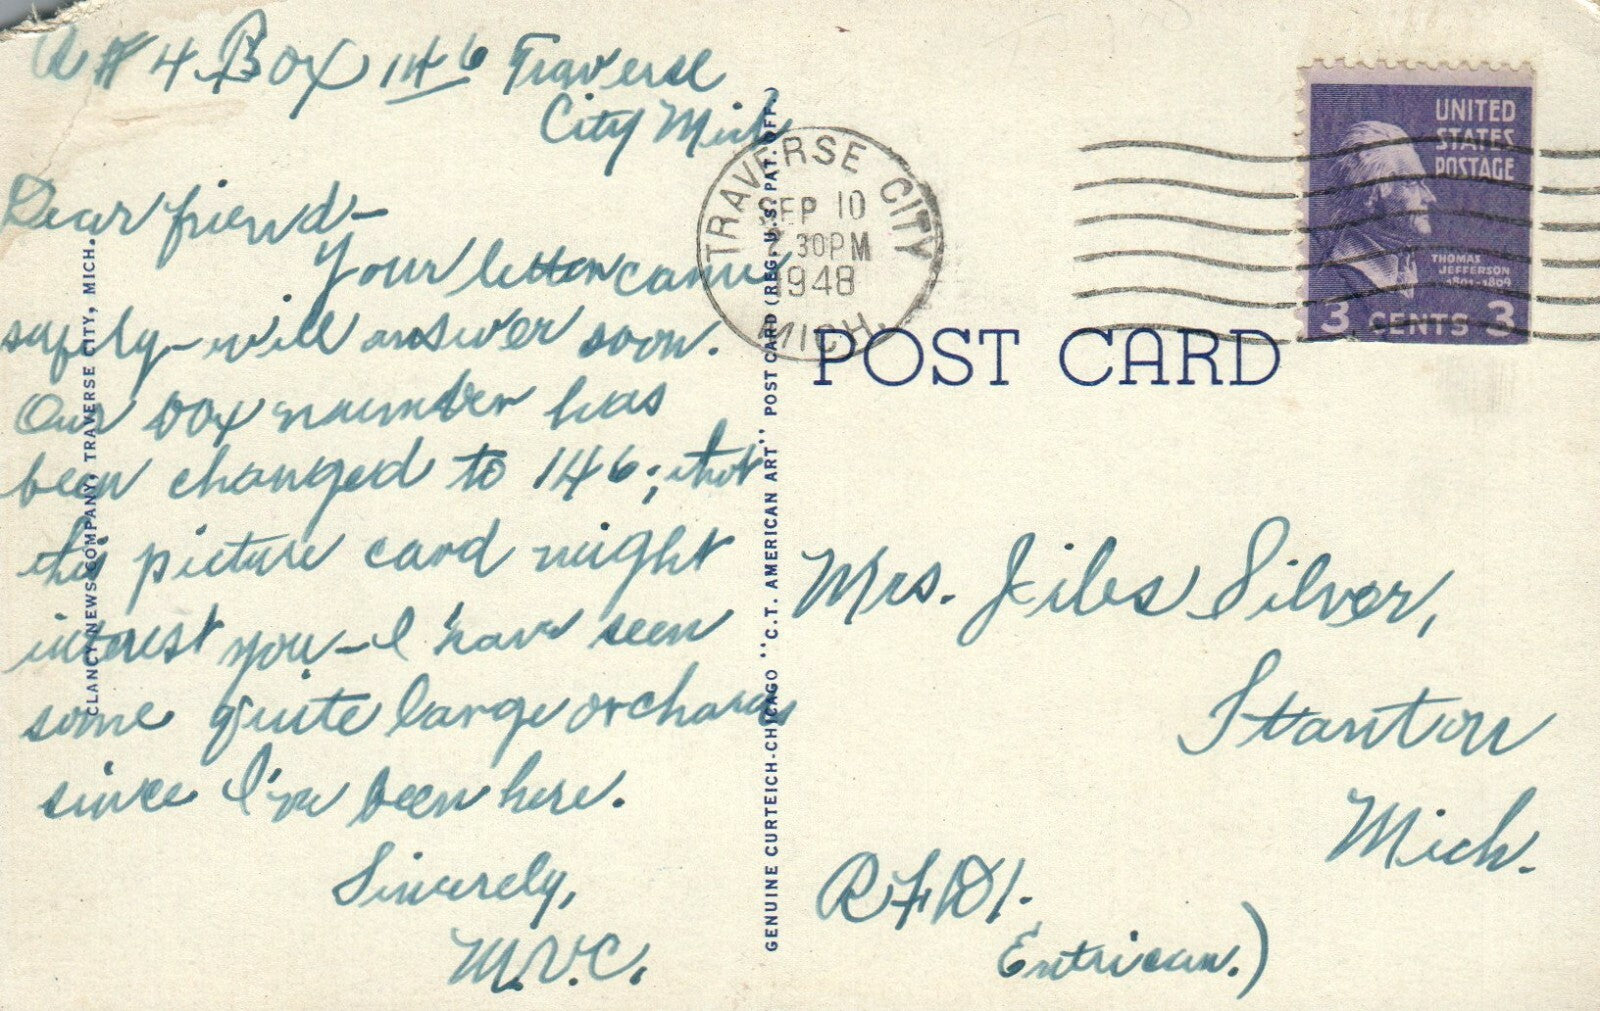 R # 4 Box 146 Traverse
City Mich
Dear friend-
Your letter came
safely - will answer soon.
Our box number has
been changed to 146; thot
this picture card might
interest you - I have seen
some quite large orchards
since I've been here.
Sincerely,
M.V.C.
CLANCY NEWS COMPANY, TRAVERSE CITY, MICH.
GENUINE CURTEICH-CHICAGO "C.T. AMERICAN ART" POST CARD (REG. U.S. PAT. OFF.)
TRAVERSE CITY
SEP 10
30PM
1948
MICH.
UNITED
STATES
POSTAGE
THOMAS
JEFFERSON
1801-1809
3 CENTS 3
POST CARD
Mrs. Jiles Silver,
Stanton
Mich.
RFD 1.
Entrican.)